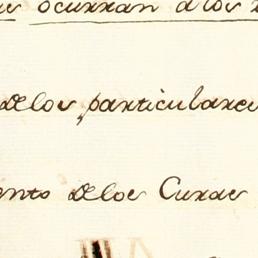 ocurran a los
de los particulares
ento de los Curas